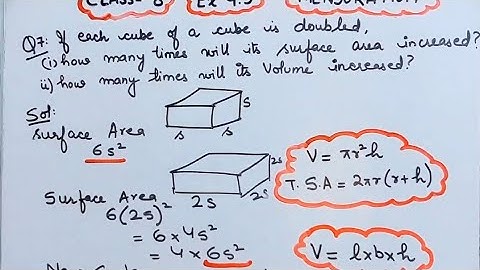 CLASS- 8 Ex 9.3 MENSURATION
Q7: If each cube of a cube is doubled,
(i) how many times will its surface area increased?
ii) how many times will its Volume increased?
Sol:
Surface Area
6s²
s
s
s
V = πr²h
T.S.A = 2πr(r+h)
2s
2s
2s
Surface Area
6(2s)²
= 6×4s²
= 4×6s²
V = l×b×h